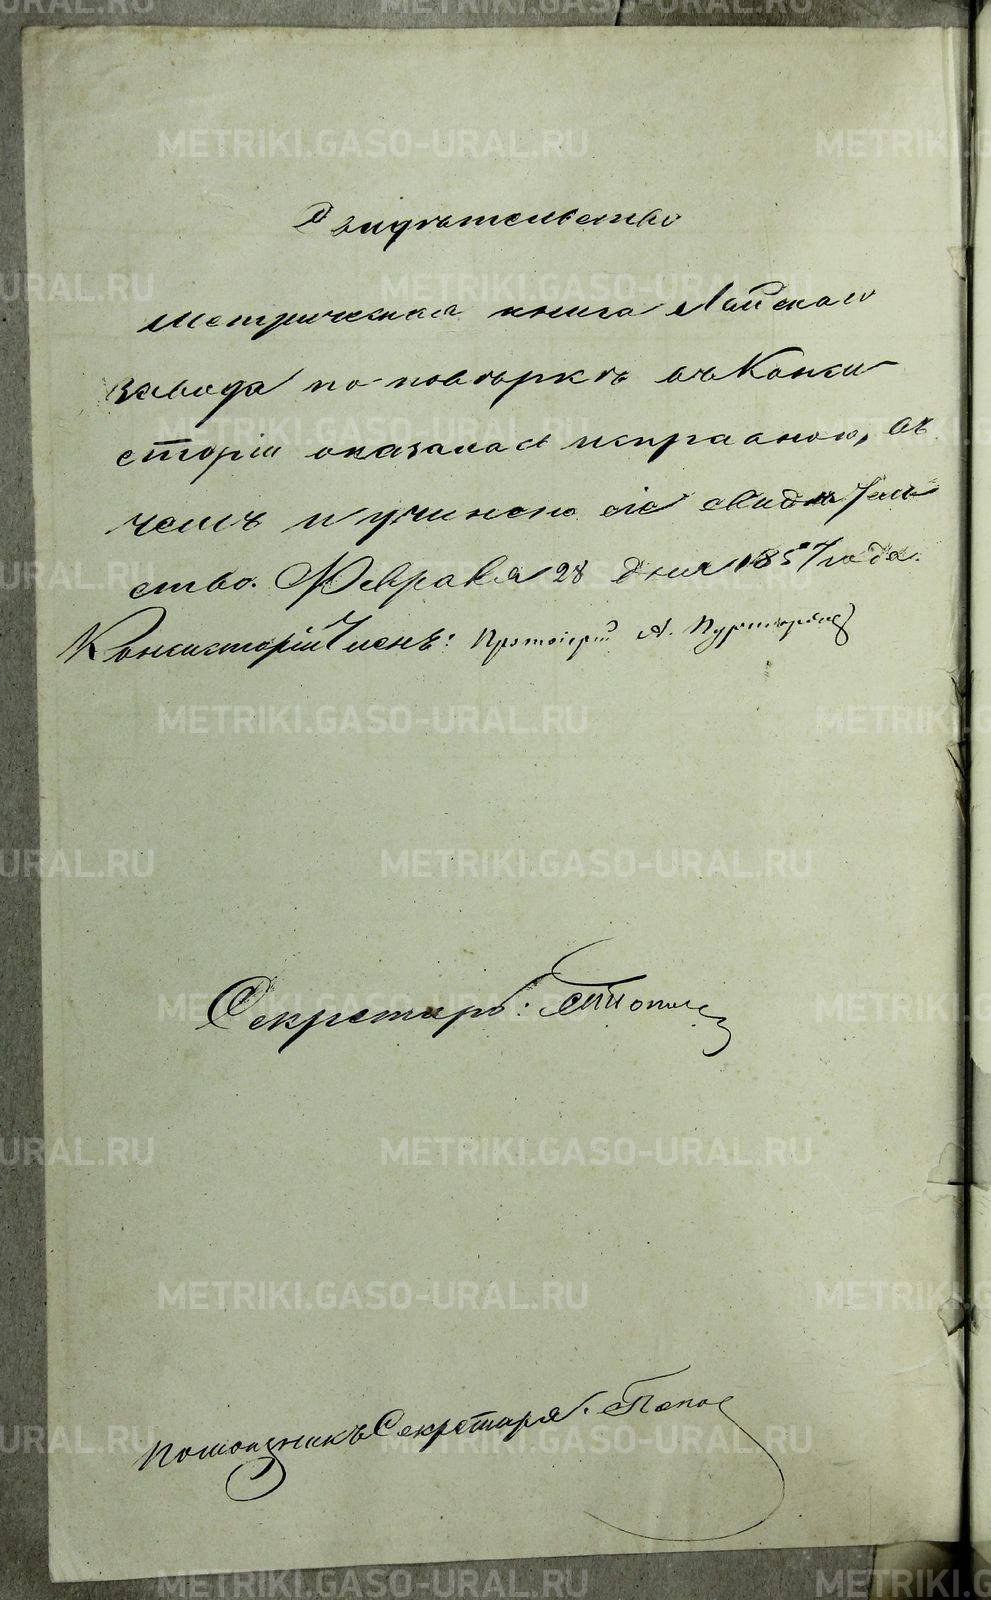 Свидѣтельство
Метрическая книга Лайскаго
завода по повѣркѣ въ Конси
сторіи оказалась исправною, въ
чемъ и учинено сіе свидѣтель
ство. Февраля 28 дня 1857 года.
Консисторіи Членъ: Протоіерей А.
Секретарь:
Помощникъ Секретаря: Попов
METRIKI.GASO-URAL.RU